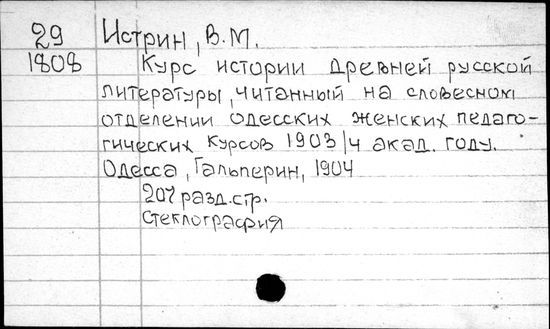 29 Истрин, В.М.
1808 Курс истории древней русской
литературы, читанный на словесном
отделении одесских женских педаго-
гических курсов 1903/4 акад. году.
Одесса, Гальперин, 1904
207 разд.стр.
Стеклография